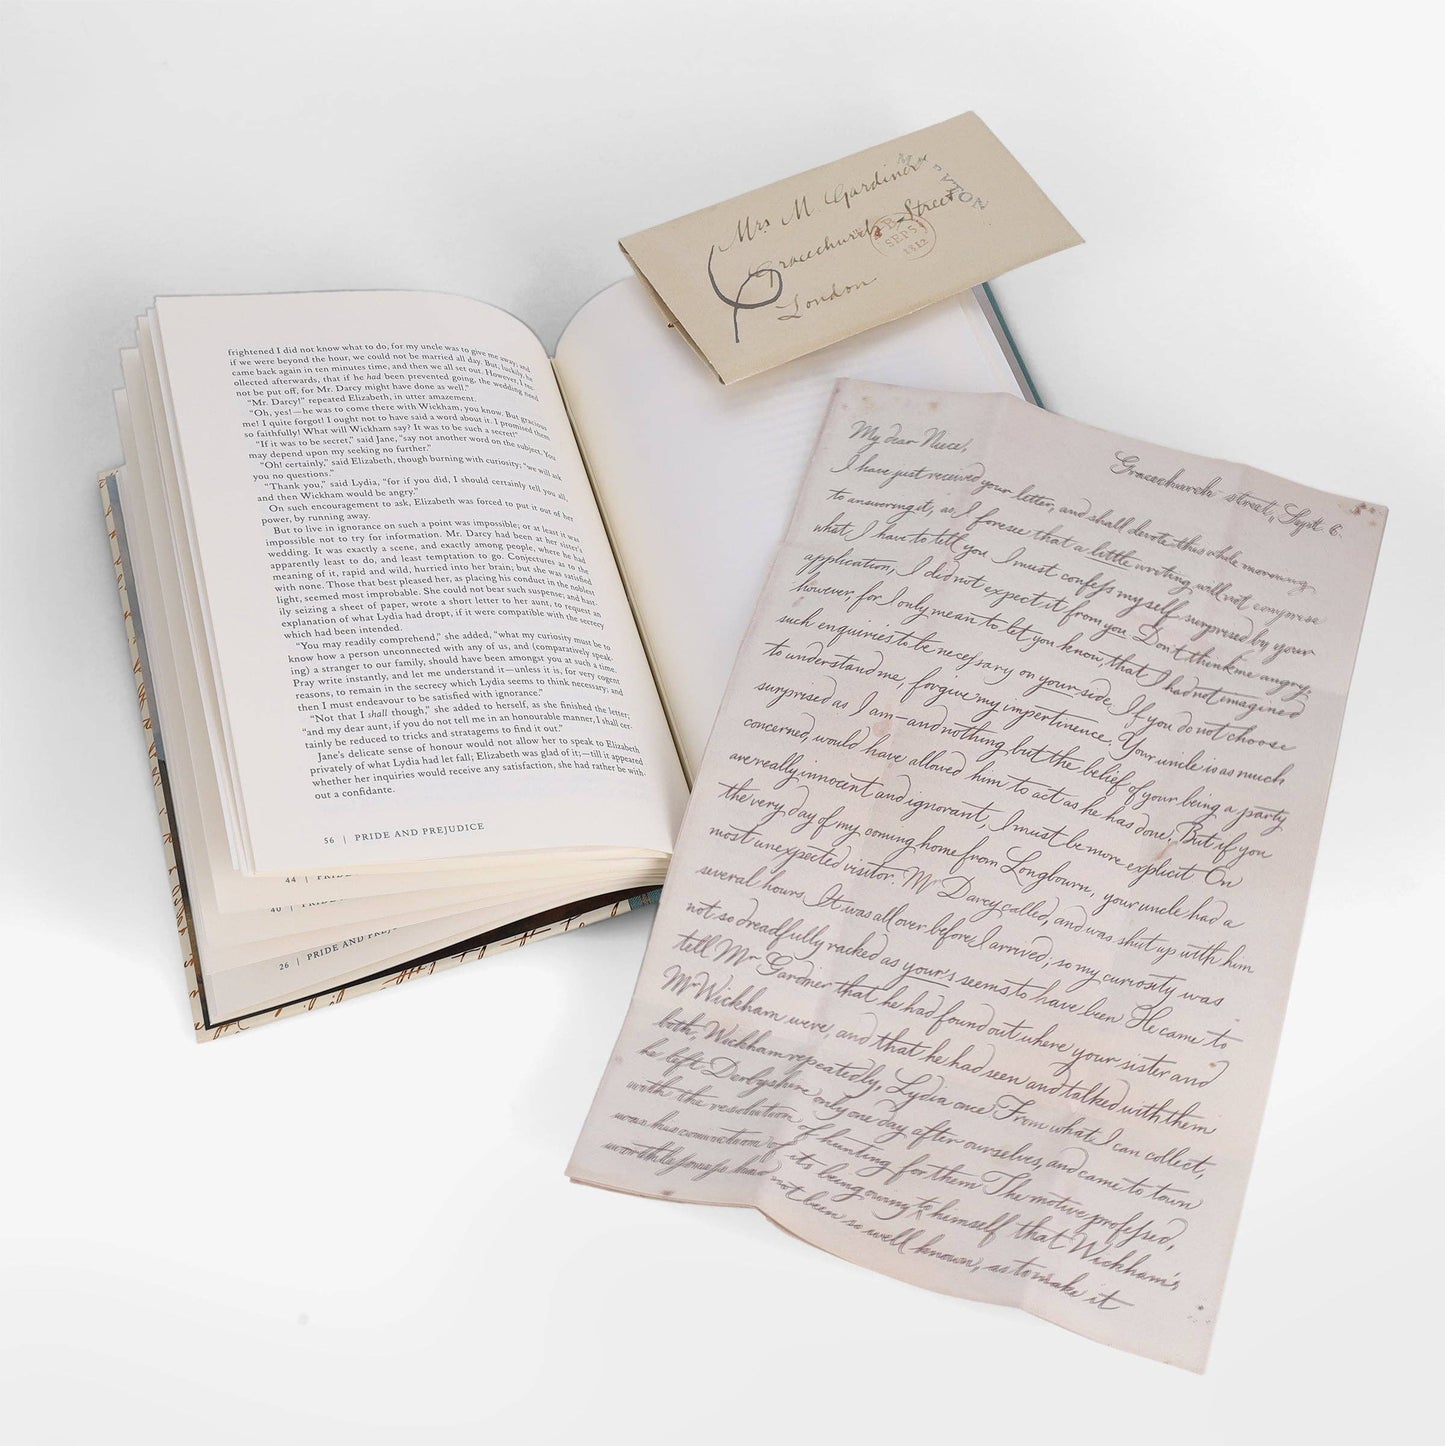 frightened I did not know what to do, for my uncle was to give me away; and
if we were beyond the hour, we could not be married all day. But, luckily, he
came back again in ten minutes time, and then we all set out. However, I rec-
ollected afterwards, that if he had been prevented going, the wedding need
not be put off, for Mr. Darcy might have done as well.”
“Mr. Darcy!” repeated Elizabeth, in utter amazement.
“Oh, yes!—he was to come there with Wickham, you know. But gracious
me! I quite forgot! I ought not to have said a word about it. I promised them
so faithfully! What will Wickham say? It was to be such a secret!”
“If it was to be secret,” said Jane, “say not another word on the subject. You
may depend upon my seeking no further.”
“Oh! certainly,” said Elizabeth, though burning with curiosity; “we will ask
you no questions.”
“Thank you,” said Lydia, “for if you did, I should certainly tell you all,
and then Wickham would be angry.”
On such encouragement to ask, Elizabeth was forced to put it out of her
power, by running away.
But to live in ignorance on such a point was impossible; or at least it was
impossible not to try for information. Mr. Darcy had been at her sister’s
wedding. It was exactly a scene, and exactly among people, where he had
apparently least to do, and least temptation to go. Conjectures as to the
meaning of it, rapid and wild, hurried into her brain; but she was satisfied
with none. Those that best pleased her, as placing his conduct in the noblest
light, seemed most improbable. She could not bear such suspense; and hast-
ily seizing a sheet of paper, wrote a short letter to her aunt, to request an
explanation of what Lydia had dropt, if it were compatible with the secrecy
which had been intended.
“You may readily comprehend,” she added, “what my curiosity must be to
know how a person unconnected with any of us, and (comparatively speak-
ing) a stranger to our family, should have been amongst you at such a time.
Pray write instantly, and let me understand it—unless it is, for very cogent
reasons, to remain in the secrecy which Lydia seems to think necessary; and
then I must endeavour to be satisfied with ignorance.”
“Not that I shall though,” she added to herself, as she finished the letter;
“and my dear aunt, if you do not tell me in an honourable manner, I shall cer-
tainly be reduced to tricks and stratagems to find it out.”
Jane’s delicate sense of honour would not allow her to speak to Elizabeth
privately of what Lydia had let fall; Elizabeth was glad of it;—till it appeared
whether her inquiries would receive any satisfaction, she had rather be with-
out a confidante.
56 | PRIDE AND PREJUDICE
44 | PRIDE
40 | PRIDE
26 | PRIDE AND PREJ
Mrs M. Gardiner
Gracechurch Street
London
B
SEP 5
1812
Gracechurch street, Sept. 6.
My dear Niece,
I have just received your letter, and shall devote this whole morning
to answering it, as I foresee that a little writing will not comprise
what I have to tell you I must confess myself surprised by your
application, I did not expect it from you Don't think me angry,
however, for I only mean to let you know, that I had not imagined
such enquiries to be necessary on your side. If you do not choose
to understand me, forgive my impertinence. Your uncle is as much
surprised as I am—and nothing but the belief of your being a party
concerned, would have allowed him to act as he has done. But if you
are really innocent and ignorant, I must be more explicit On
the very day of my coming home from Longbourn, your uncle had a
most unexpected visitor. Mr Darcy called, and was shut up with him
several hours. It was all over before I arrived; so my curiosity was
not so dreadfully racked as your's seems to have been He came to
tell Mr Gardiner that he had found out where your sister and
Mr Wickham were, and that he had seen and talked with them
both, Wickham repeatedly, Lydia once From what I can collect,
he left Derbyshire only one day after ourselves, and came to town
with the resolution of hunting for them The motive professed,
was his conviction of its being owing to himself that Wickham's
worthlessness had not been so well known, as to make it